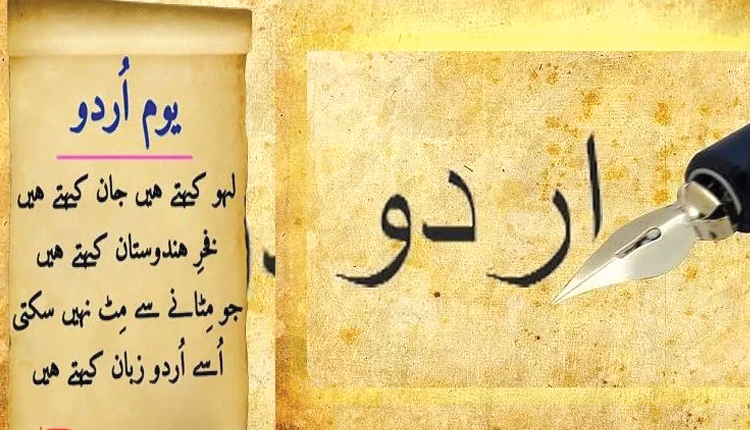 یوم اُردو
لہو کہتے ہیں جان کہتے ہیں
فخرِ ہندوستان کہتے ہیں
جو مِٹانے سے مِٹ نہیں سکتی
اُسے اُردو زبان کہتے ہیں
اردو